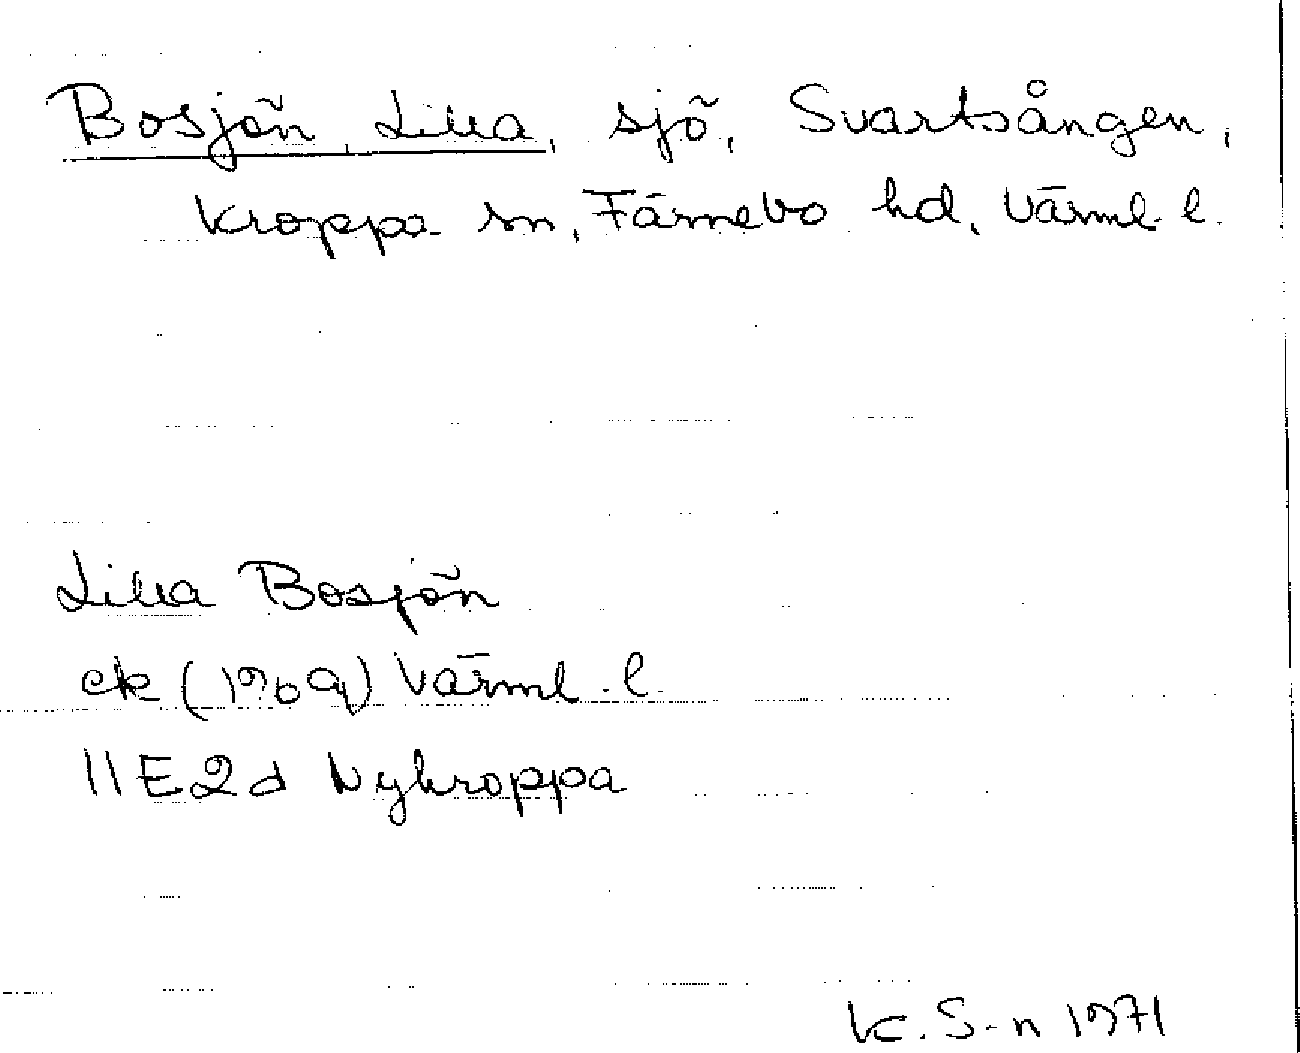 Bosjön, Lilla, sjö, Svartsången,
Kroppa sn, Färnebo hd, Värml. l.
Lilla Bosjön
ek (1969) Värml. l.
11E2d Nykroppa
K. S-n 1971